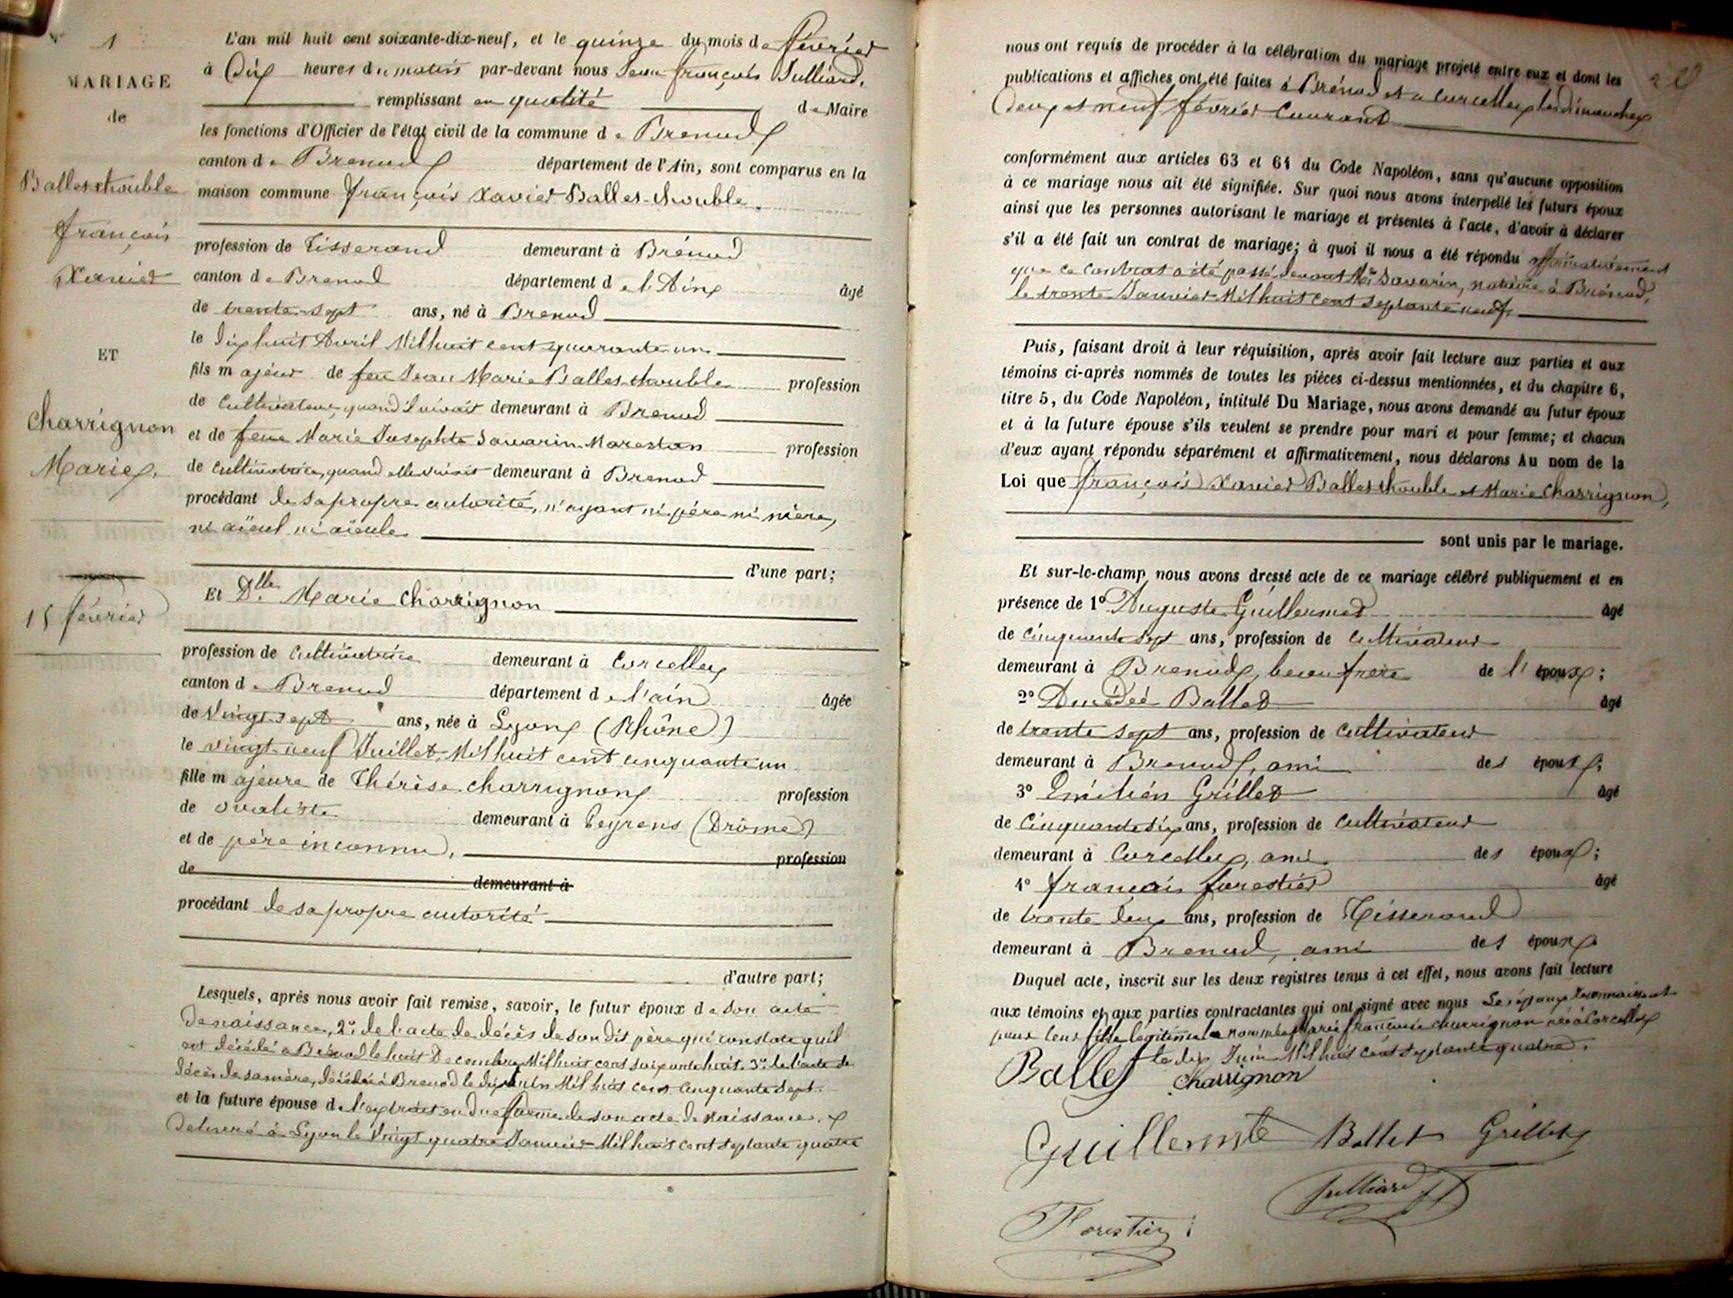 N° 1
MARIAGE
de
Ballet-chouble
François
Xavier
ET
Charrignon
Marie.
15 février
L'an mil huit cent soixante-dix-neuf, et le quinze du mois de février
à Dix heures du matin par-devant nous Jean françois Julliard,
remplissant en qualité de Maire
les fonctions d'Officier de l'état civil de la commune de Brenod
canton de Brenod département de l'Ain, sont comparus en la
maison commune françois Xavier Ballet-chouble.
profession de Tisserand demeurant à Brénod
canton de Brenod département de l'Ain âgé
de trente-sept ans, né à Brenod
le dixhuit Avril Mil huit cent quarante un
fils majeur de feu Jean Marie Ballet-chouble profession
de Cultivateur, quand il vivait demeurant à Brenod
et de feue Marie Josephte Savarin-Marestan profession
de Cultivatrice, quand elle vivait demeurant à Brenod
procédant de sa propre autorité, n'ayant ni père ni mère,
ni aïeul ni aïeule
d'une part;
Et Dlle Marie Charrignon
profession de Cultivatrice demeurant à Corcelles
canton de Brenod département de l'ain âgée
de Vingt sept ans, née à Lyon (Rhône)
le vingt-neuf Juillet Mil huit cent cinquante un
fille majeure de Thérèse charrignon profession
de ovaliste demeurant à Peyrens (Drôme)
et de père inconnu, profession
de demeurant à
procédant de sa propre autorité
d'autre part;
Lesquels, après nous avoir fait remise, savoir, le futur époux de son acte
de naissance, 2° de l'acte de décès de son dit père qui constate qu'il
est décédé à Brénod le huit Décembre Mil huit cent soixante huit. 3° de l'acte de
décès de sa mère, décédée à Brenod le dix Mil huit cent cinquante sept.
et la future épouse de l'extrait en due forme de son acte de naissance,
Délivré à Lyon le Vingt quatre Janvier Mil huit cent septante quatre
nous ont requis de procéder à la célébration du mariage projeté entre eux et dont les
publications et affiches ont été faites à Brénod et à Corcelles les dimanches
deux et neuf février Courant
conformément aux articles 63 et 64 du Code Napoléon, sans qu'aucune opposition
à ce mariage nous ait été signifiée. Sur quoi nous avons interpellé les futurs époux
ainsi que les personnes autorisant le mariage et présentes à l'acte, d'avoir à déclarer
s'il a été fait un contrat de mariage; à quoi il nous a été répondu affirmativement
que ce contrat a été passé devant Me Savarin, notaire à Brénod,
le trente Janvier Mil huit cent septante neuf.
Puis, faisant droit à leur réquisition, après avoir fait lecture aux parties et aux
témoins ci-après nommés de toutes les pièces ci-dessus mentionnées, et du chapitre 6,
titre 5, du Code Napoléon, intitulé Du Mariage, nous avons demandé au futur époux
et à la future épouse s'ils veulent se prendre pour mari et pour femme; et chacun
d'eux ayant répondu séparément et affirmativement, nous déclarons Au nom de la
Loi que françois Xavier Ballet-chouble et Marie Charrignon,
sont unis par le mariage.
Et sur-le-champ nous avons dressé acte de ce mariage célébré publiquement et en
présence de 1° Auguste Guillermet âgé
de cinquante sept ans, profession de cultivateur
demeurant à Brenod, beau frère de l'époux;
2° Amédée Ballet âgé
de trente sept ans, profession de cultivateur
demeurant à Brenod, ami des époux;
3° Emilien Grillet âgé
de Cinquante six ans, profession de Cultivateur
demeurant à Corcelles, ami des époux;
4° françois forestier âgé
de trente deux ans, profession de Tisserand
demeurant à Brenod, ami des époux
Duquel acte, inscrit sur les deux registres tenus à cet effet, nous avons fait lecture
aux témoins et aux parties contractantes qui ont signé avec nous Les époux reconnaissent
pour leur fille légitime la nommée Marie françoise charrignon née à Corcelles
le dix Juin Mil huit cent septante quatre.
Ballet Charrignon
Guillermet Ballet Grillet
Julliard
Forestier